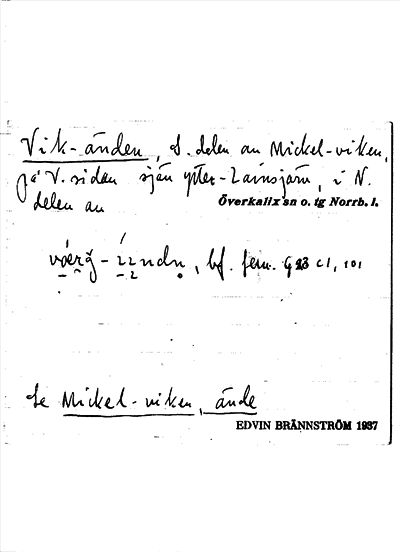 Vik-änden, S. delen av Mickel-viken,
på V. sidan sjön Ytter-Lainsjärn, i N.
delen av Överkalix sn o. tg Norrb. l.
bf. fem.
Se Mickel-viken, ände
EDVIN BRÄNNSTRÖM 1937